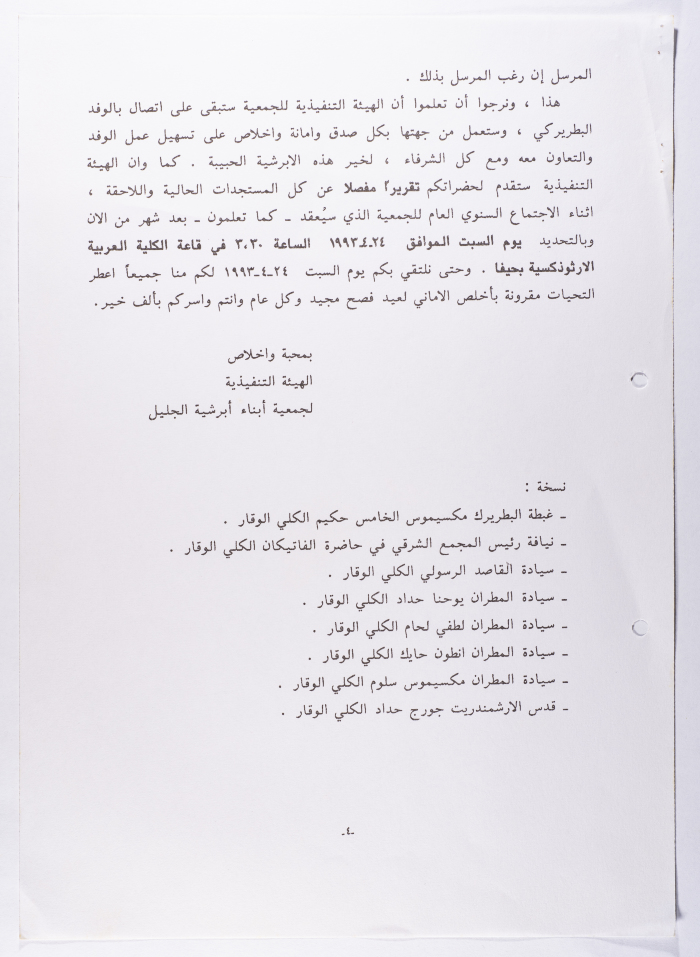 المرسل إن رغب المرسل بذلك .
هذا ، ونرجوا أن تعلموا أن الهيئة التنفيذية للجمعية ستبقى على اتصال بالوفد
البطريركي ، وستعمل من جهتها بكل صدق وامانة واخلاص على تسهيل عمل الوفد
والتعاون معه ومع كل الشرفاء ، لخير هذه الابرشية الحبيبة . كما وان الهيئة
التنفيذية ستقدم لحضراتكم تقريرًا مفصلا عن كل المستجدات الحالية واللاحقة ،
اثناء الاجتماع السنوي العام للجمعية الذي سيُعقد ـ كما تعلمون ـ بعد شهر من الان
وبالتحديد يوم السبت الموافق ٢٤ـ٤ـ١٩٩٣ الساعة ٣،٣٠ في قاعة الكلية العربية
الارثوذكسية بحيفا . وحتى نلتقي بكم يوم السبت ٢٤ـ٤ـ١٩٩٣ لكم منا جميعاً اعطر
التحيات مقرونة بأخلص الاماني لعيد فصح مجيد وكل عام وانتم واسركم بألف خير.
بمحبة واخلاص
الهيئة التنفيذية
لجمعية أبناء أبرشية الجليل
نسخة :
ـ غبطة البطريرك مكسيموس الخامس حكيم الكلي الوقار .
ـ نيافة رئيس المجمع الشرقي في حاضرة الفاتيكان الكلي الوقار .
ـ سيادة القاصد الرسولي الكلي الوقار .
ـ سيادة المطران يوحنا حداد الكلي الوقار .
ـ سيادة المطران لطفي لحام الكلي الوقار .
ـ سيادة المطران انطون حايك الكلي الوقار .
ـ سيادة المطران مكسيموس سلوم الكلي الوقار .
ـ قدس الارشمندريت جورج حداد الكلي الوقار .
ـ٤ـ